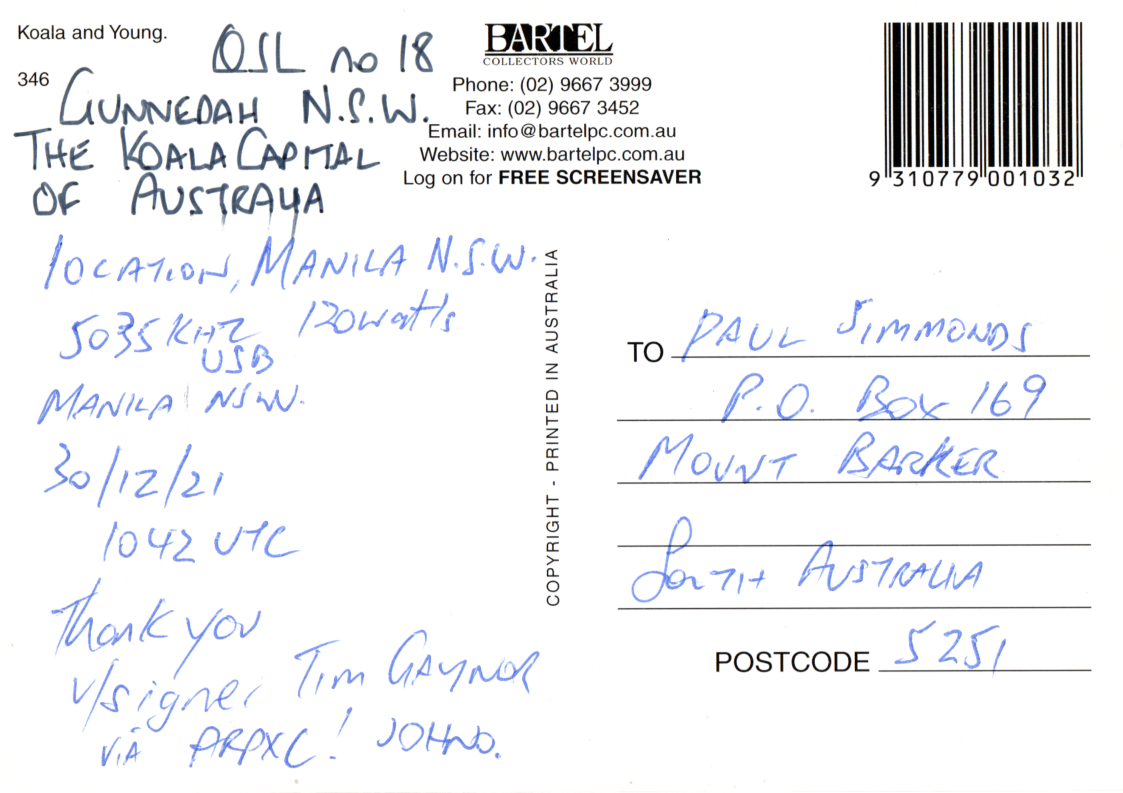 Koala and Young.
346
QSL no 18
GUNNEDAH N.S.W.
THE KOALA CAPITAL
OF AUSTRALIA
BARTEL
COLLECTORS WORLD
Phone: (02) 9667 3999
Fax: (02) 9667 3452
Email: info@bartelpc.com.au
Website: www.bartelpc.com.au
Log on for FREE SCREENSAVER
9 310779 001032
LOCATION, MANILA N.S.W.
5035 KHZ 120watts
USB
MANILA NSW.
30/12/21
1042 UTC
Thank you
v/signer Tim GAYNOR
VIA ARPXC! JOHNO.
COPYRIGHT - PRINTED IN AUSTRALIA
TO PAUL SIMMONDS
P.O. BOX 169
MOUNT BARKER
South AUSTRALIA
POSTCODE 5251